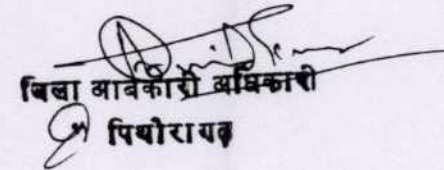 जिला आबकारी अधिकारी
पिथौरागढ़